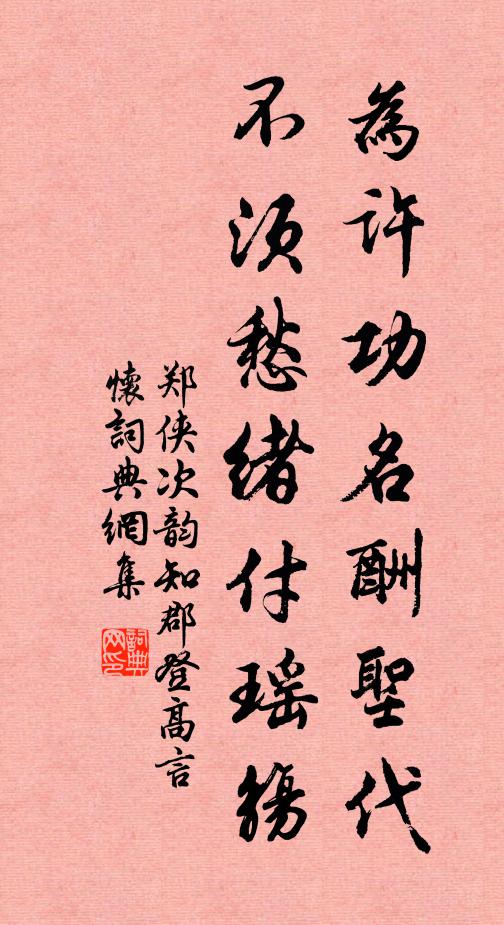 為许功名酬聖代
不须愁绪付瑶觞
郑侠次韵知郡登高言
懷詞典網集
詞典
网印